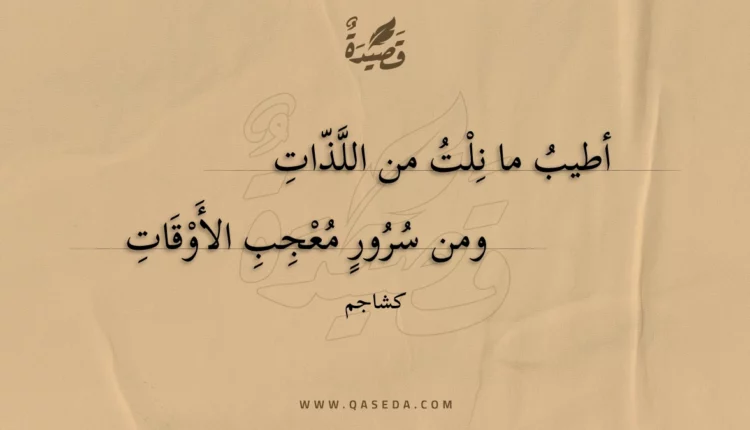 قَصِيدَةٌ
أطيبُ ما نِلْتُ من اللَّذّاتِ
ومن سُرُورٍ مُعْجِبِ الأَوْقَاتِ
كشاجم
WWW.QASEDA.COM